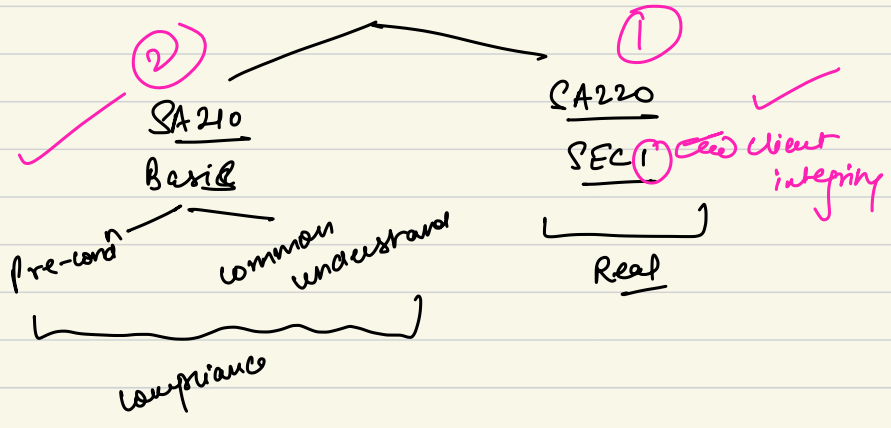 ②
①
SA210
Basic
Pre-condⁿ
common
understand
compliance
SA220
SEC1
client
integrity
Real